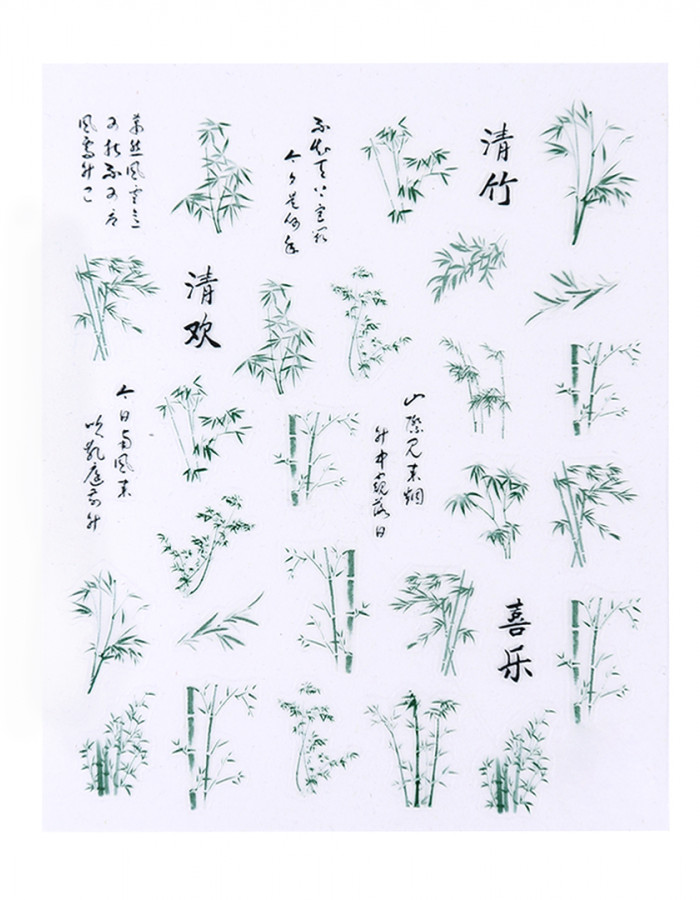 萧然风雪意
可折不可辱
风霁竹已
不知天上宫阙
今夕是何年
清竹
清欢
今日南风来
吹乱庭前竹
山际见来烟
竹中窥落日
喜乐